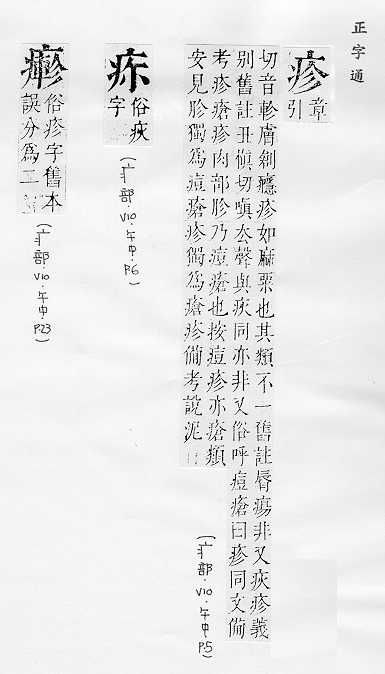 正字通
疹 章引
切音軫膚刱癮疹如麻粟也其類不一舊註脣瘍非又疢疹義
別舊註丑愼切嗔去聲與疢同亦非又俗呼痘瘡曰疹同文備
考疹瘡疹肉部胗乃痘瘡也按痘疹亦瘡類
安見胗獨爲痘瘡疹獨爲瘡疹備考說泥
(疒部.V10.午中.P5)
俗疢
字
(疒部.V10.午中.P6)
俗疹字舊本
誤分爲二
(疒部.V10.午中.P23)